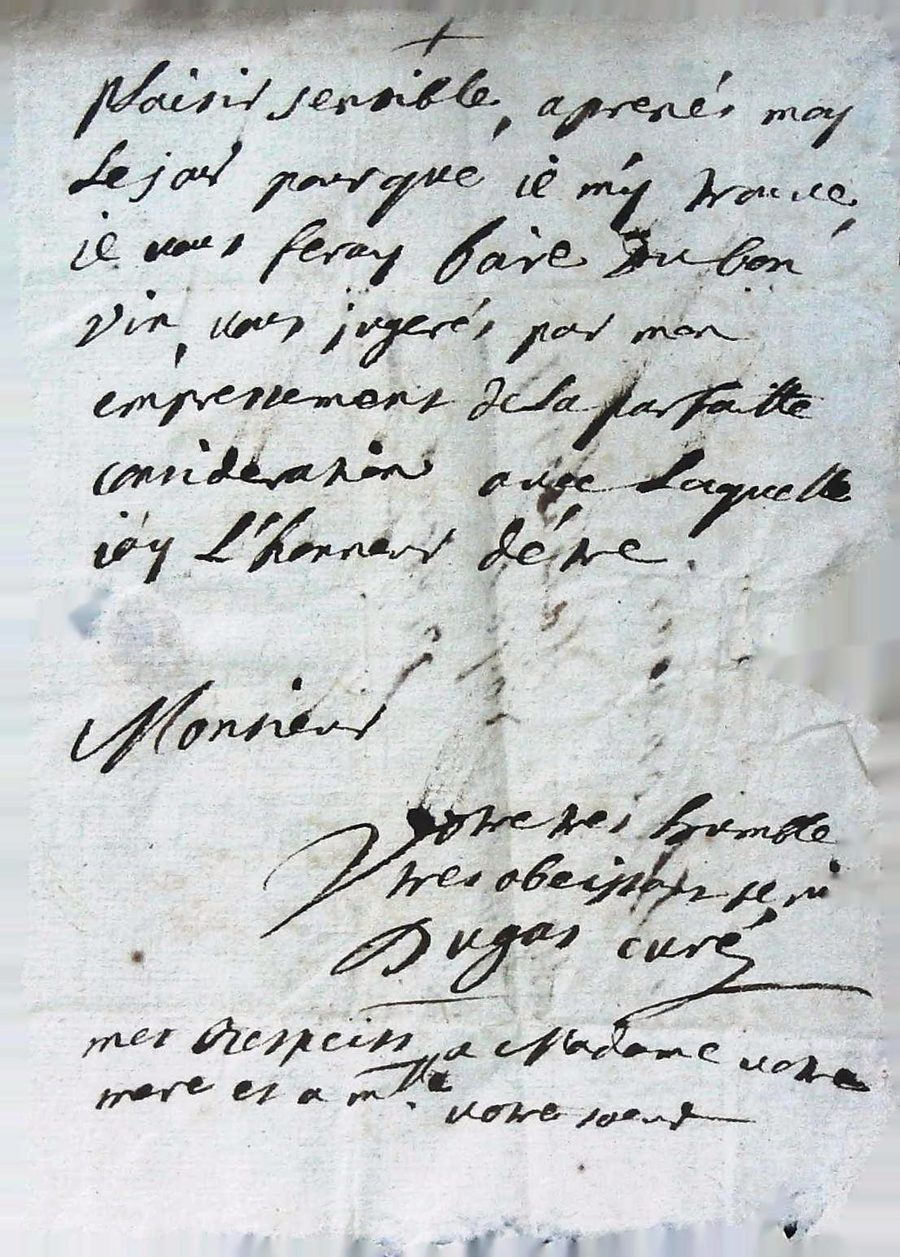 +
plaisir sensible, aprenés moy
Le jour pour que je m'y trouve,
je vous feray boire Du bon
vin, vous jugerés par mon
empressement de La parfaitte
consideration avec Laquelle
j'ay L'honneur d'étre.
Monsieur
Votre tres humble
tres obeissant serv
Dugas curé
mes Respects a Madame votre
mere et a mlle votre soeur